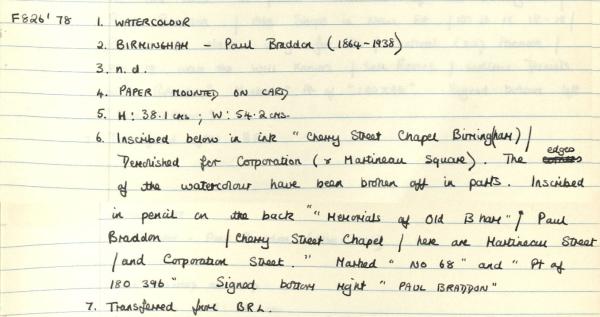 F826' 78 1. WATERCOLOUR
2. BIRMINGHAM - Paul Braddon (1864-1938)
3. n.d.
4. PAPER MOUNTED ON CARD
5. H: 38.1 cms ; W: 54.2 cms.
6. Inscribed below in ink "Cherry Street Chapel Birming(ham) /
Demolished for Corporation (& Martineau Square). The edges
of the watercolour have been broken off in parts. Inscribed
in pencil on the back ""Memorials of Old B'ham" / Paul
Braddon / Cherry Street Chapel / here are Martineau Street
/ and Corporation Street." Marked "No 68" and "Pt of
180 396" Signed bottom right "PAUL BRADDON"
7. Transferred from B.R.L.